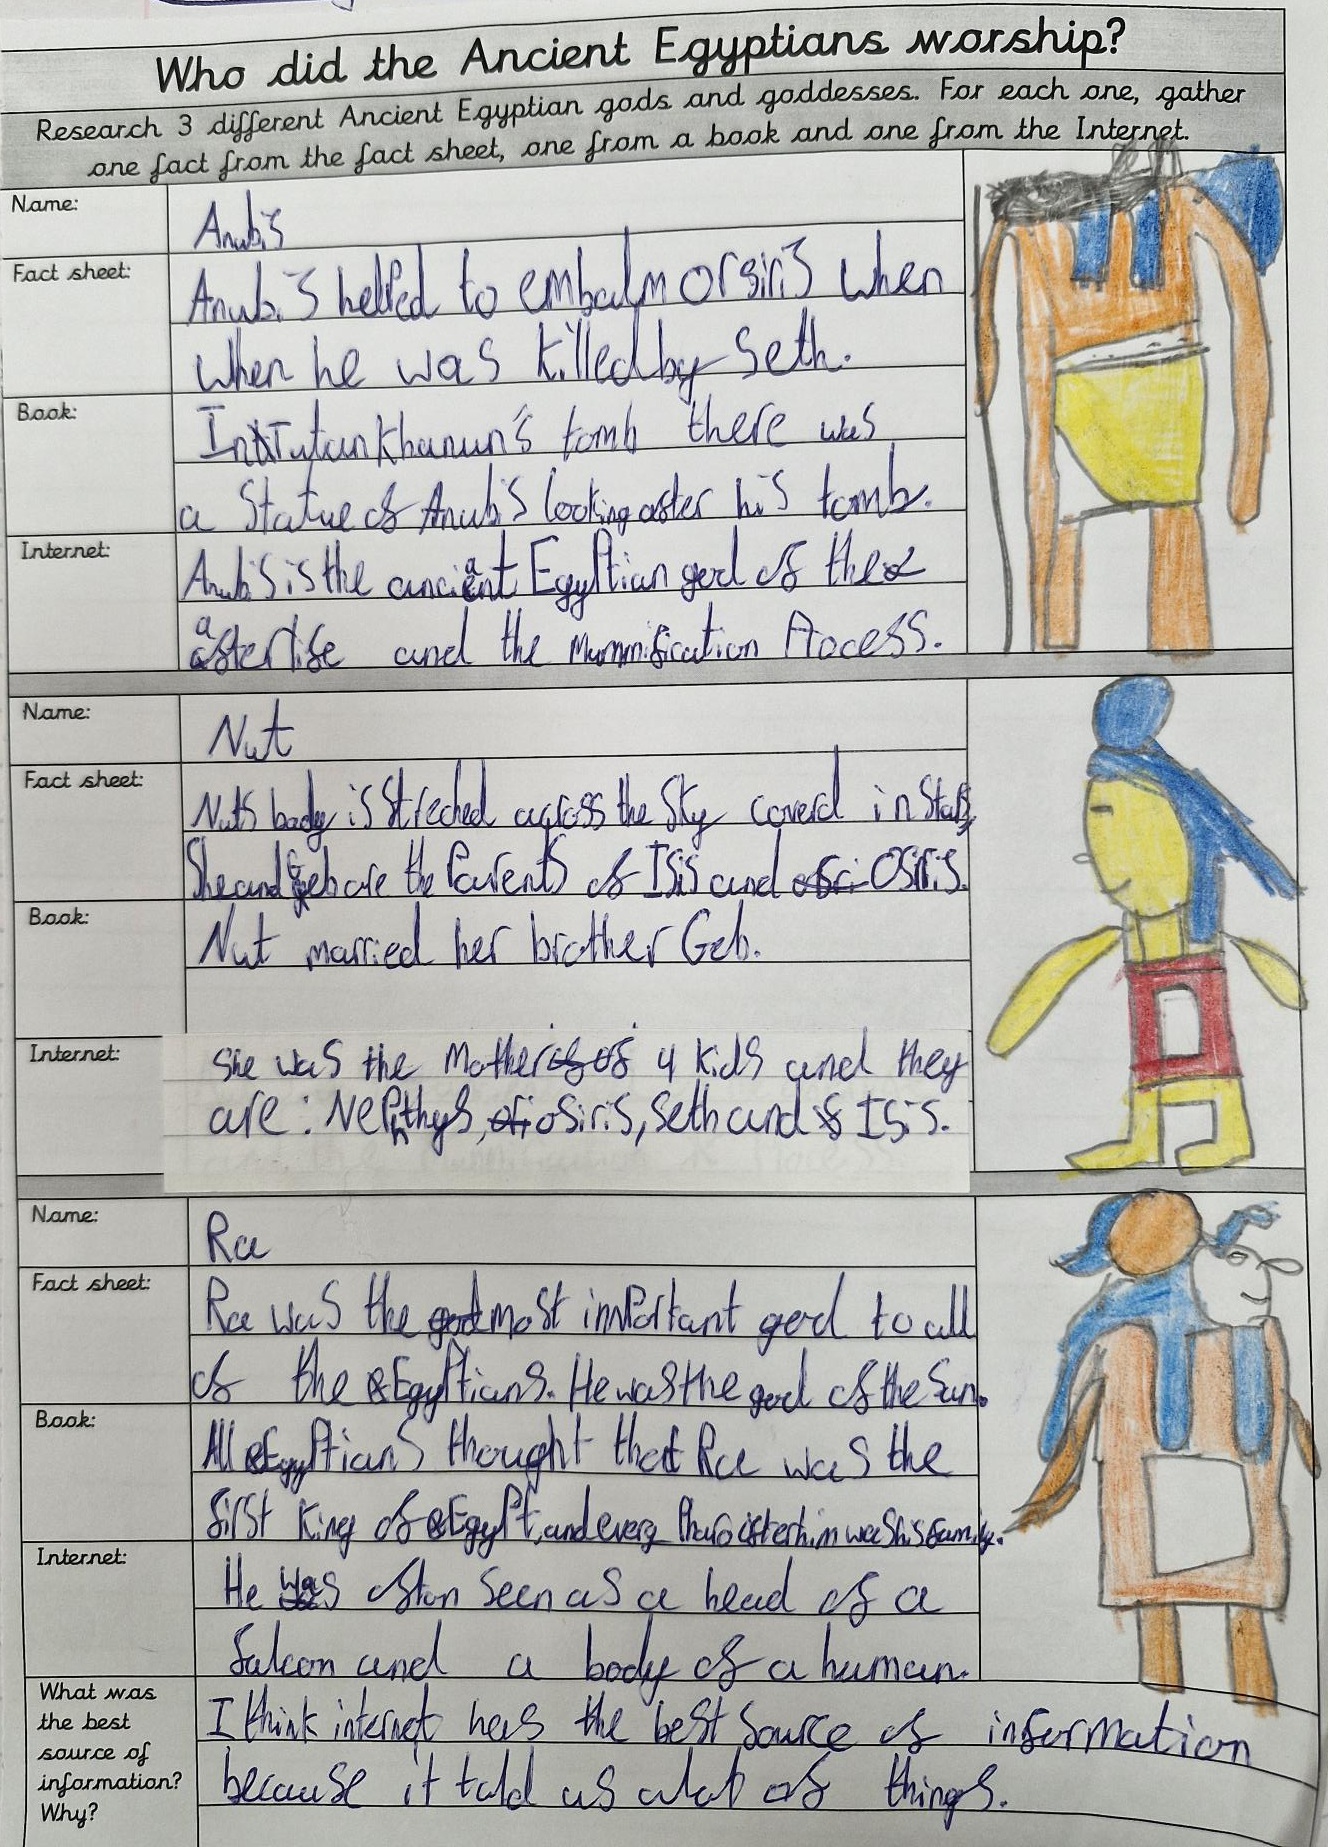 Who did the Ancient Egyptians worship?
Research 3 different Ancient Egyptian gods and goddesses. For each one, gather
one fact from the fact sheet, one from a book and one from the Internet.
Name:
Anubis
Fact sheet:
Anubis helped to embalm orsiris when
when he was killed by Seth.
Book:
In Tutankhamun's tomb there was
a Statue of Anubis looking after his tomb.
Internet:
Anubis is the anciant Egyptian god of the
afterlife and the Mummification Process.
Name:
Nut
Fact sheet:
Nuts body is streched across the Sky coverd in Stars,
She and geb are the Parents of Isis and Osiris.
Book:
Nut married her brother Geb.
Internet:
She was the Mother of 4 kids and they
are: Nephthys, osiris, Seth and Isis.
Name:
Ra
Fact sheet:
Ra was the most important god to all
of the Egyptians. He was the god of the Sun.
Book:
All Egyptians thought that Ra was the
first King of Egypt, and every Pharo after him was his family.
Internet:
He was oftan seen as a head of a
falcon and a body of a human.
What was
the best
source of
information?
Why?
I think internet has the best Source of information
because it told us alot of things.